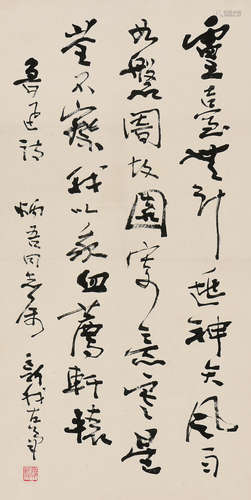 靈臺無計逃神矢風雨
如磐闇故園寄意寒星
荃不察我以我血薦軒轅
魯迅詩 炳吾同志属 新我左筆